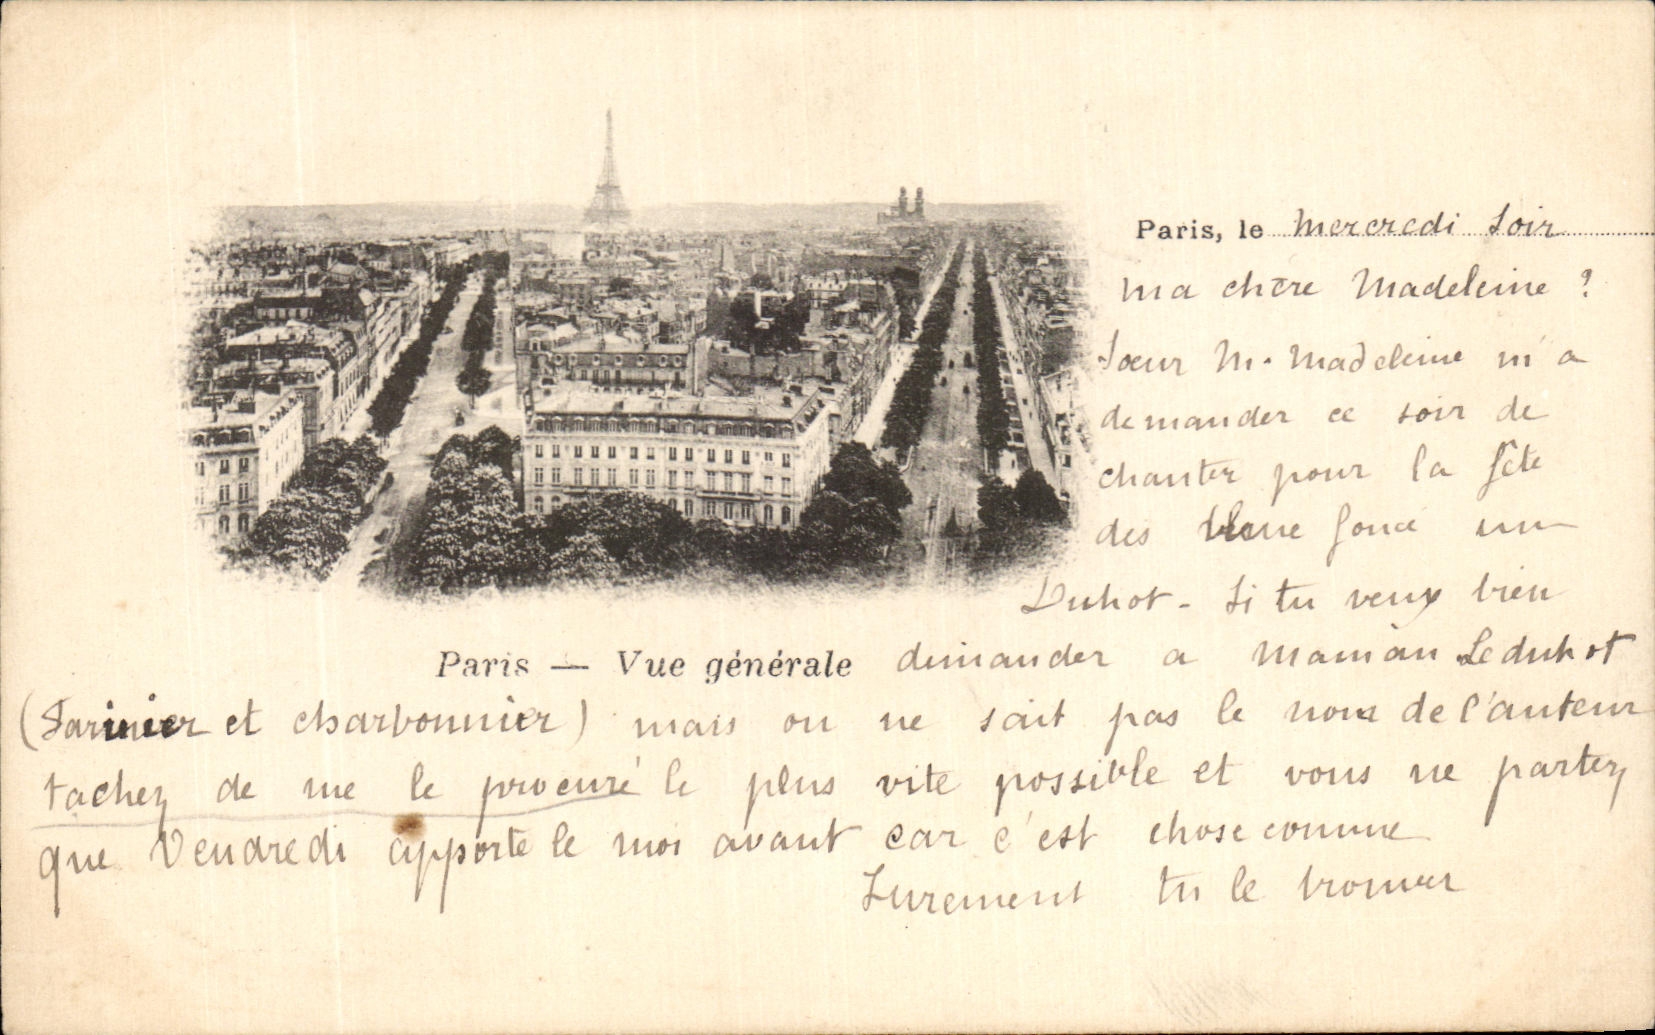 Paris, le mercredi soir
ma chère Madeleine ?
Soeur M. Madeleine m'a
demander ce soir de
chanter pour la fête
des bleue foncé un
Duhot - si tu veux bien
Paris — Vue générale
demander a maman Le duhot
(Farinier et charbonnier) mais on ne sait pas le nom de l'auteur
tachez de me le procuré le plus vite possible et vous ne partez
que Vendredi apporte le moi avant car c'est chose comme
Surement tu le trouver